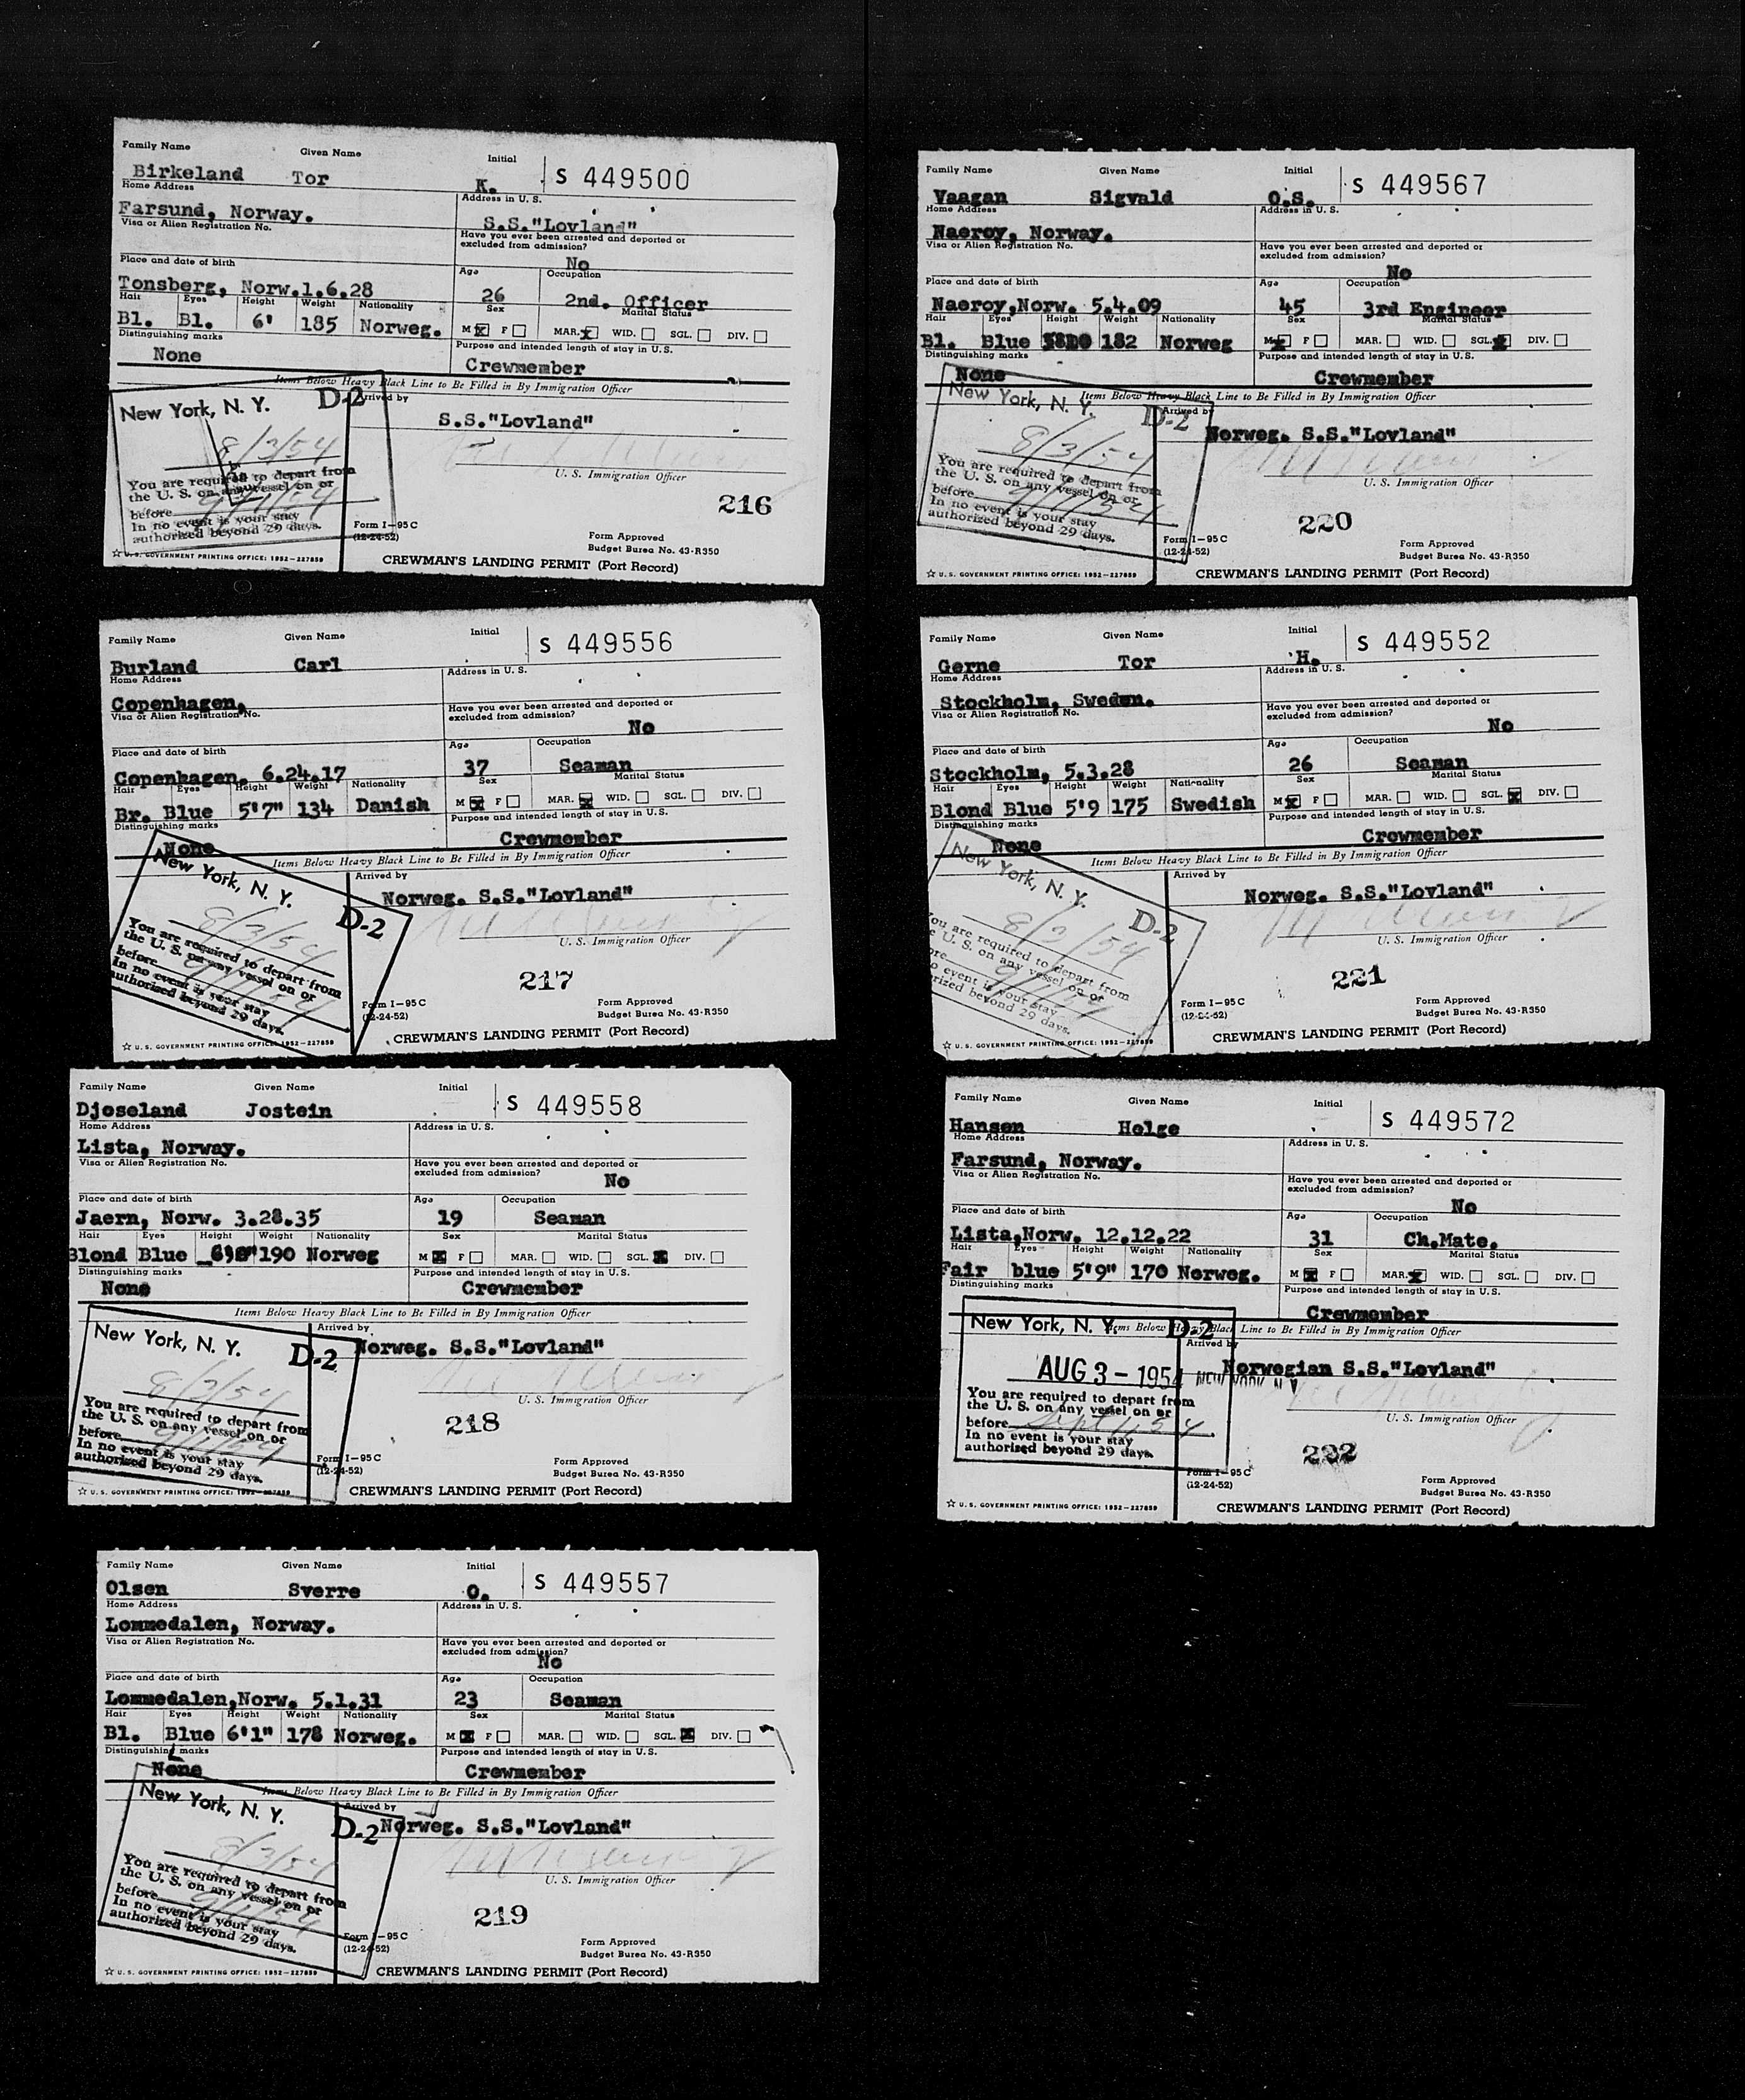 Family Name Given Name Initial S 449500
Birkeland Tor K.
Home Address Address in U. S.
Farsund, Norway. S.S."Lovland"
Visa or Alien Registration No. Have you ever been arrested and deported or
excluded from admission?
No
Place and date of birth Age Occupation
Tonsberg, Norw.1.6.28 26 2nd. Officer
Hair Eyes Height Weight Nationality Sex Marital Status
Bl. Bl. 6' 185 Norweg. M F MAR. WID. SGL. DIV.
Distinguishing marks Purpose and intended length of stay in U.S.
None Crewmember
Items Below Heavy Black Line to Be Filled in By Immigration Officer
New York, N. Y. D-2 Arrived by
S.S."Lovland"
8/3/54
U. S. Immigration Officer
You are required to depart from
the U. S. on any vessel on or
before 9/1/54
In no event is your stay
authorized beyond 29 days.
216
Form I-95 C
(12-24-52)
Form Approved
Budget Burea No. 43-R350
U. S. GOVERNMENT PRINTING OFFICE: 1952-227859 CREWMAN'S LANDING PERMIT (Port Record)
Family Name Given Name Initial S 449556
Burland Carl
Home Address Address in U. S.
Copenhagen,
Visa or Alien Registration No. Have you ever been arrested and deported or
excluded from admission?
No
Place and date of birth Age Occupation
Copenhagen, 6.24.17 37 Seaman
Hair Eyes Height Weight Nationality Sex Marital Status
Br. Blue 5'7" 134 Danish M F MAR. WID. SGL. DIV.
Distinguishing marks Purpose and intended length of stay in U.S.
None Crewmember
Items Below Heavy Black Line to Be Filled in By Immigration Officer
New York, N. Y. D-2 Arrived by
Norweg. S.S."Lovland"
8/3/54
U. S. Immigration Officer
You are required to depart from
the U. S. on any vessel on or
before 9/1/54
In no event is your stay
authorized beyond 29 days.
217
Form I-95 C
(12-24-52)
Form Approved
Budget Burea No. 43-R350
U. S. GOVERNMENT PRINTING OFFICE: 1952-227859 CREWMAN'S LANDING PERMIT (Port Record)
Family Name Given Name Initial S 449558
Djoseland Jostein
Home Address Address in U. S.
Lista, Norway.
Visa or Alien Registration No. Have you ever been arrested and deported or
excluded from admission?
No
Place and date of birth Age Occupation
Jaern, Norw. 3.28.35 19 Seaman
Hair Eyes Height Weight Nationality Sex Marital Status
Blond Blue 190 Norweg M F MAR. WID. SGL. DIV.
Distinguishing marks Purpose and intended length of stay in U.S.
None Crewmember
Items Below Heavy Black Line to Be Filled in By Immigration Officer
New York, N. Y. D-2 Arrived by
Norweg. S.S."Lovland"
8/3/54
U. S. Immigration Officer
You are required to depart from
the U. S. on any vessel on or
before 9/1/54
In no event is your stay
authorized beyond 29 days.
218
Form I-95 C
(12-24-52)
Form Approved
Budget Burea No. 43-R350
U. S. GOVERNMENT PRINTING OFFICE: 1952-227859 CREWMAN'S LANDING PERMIT (Port Record)
Family Name Given Name Initial S 449557
Olsen Sverre O.
Home Address Address in U. S.
Lommedalen, Norway.
Visa or Alien Registration No. Have you ever been arrested and deported or
excluded from admission?
No
Place and date of birth Age Occupation
Lommedalen,Norw. 5.1.31 23 Seaman
Hair Eyes Height Weight Nationality Sex Marital Status
Bl. Blue 6'1" 178 Norweg. M F MAR. WID. SGL. DIV.
Distinguishing marks Purpose and intended length of stay in U.S.
None Crewmember
Items Below Heavy Black Line to Be Filled in By Immigration Officer
New York, N. Y. D-2 Arrived by
Norweg. S.S."Lovland"
8/3/54
U. S. Immigration Officer
You are required to depart from
the U. S. on any vessel on or
before 9/1/54
In no event is your stay
authorized beyond 29 days.
219
Form I-95 C
(12-24-52)
Form Approved
Budget Burea No. 43-R350
U. S. GOVERNMENT PRINTING OFFICE: 1952-227859 CREWMAN'S LANDING PERMIT (Port Record)
Family Name Given Name Initial S 449567
Vaagan Sigvald O.S.
Home Address Address in U. S.
Naeroy, Norway.
Visa or Alien Registration No. Have you ever been arrested and deported or
excluded from admission?
No
Place and date of birth Age Occupation
Naeroy,Norw. 5.4.09 45 3rd Engineer
Hair Eyes Height Weight Nationality Sex Marital Status
Bl. Blue 182 Norweg M F MAR. WID. SGL. DIV.
Distinguishing marks Purpose and intended length of stay in U.S.
None Crewmember
Items Below Heavy Black Line to Be Filled in By Immigration Officer
New York, N. Y. D-2 Arrived by
Norweg. S.S."Lovland"
8/3/54
U. S. Immigration Officer
You are required to depart from
the U. S. on any vessel on or
before 9/1/54
In no event is your stay
authorized beyond 29 days.
220
Form I-95 C
(12-24-52)
Form Approved
Budget Burea No. 43-R350
U. S. GOVERNMENT PRINTING OFFICE: 1952-227859 CREWMAN'S LANDING PERMIT (Port Record)
Family Name Given Name Initial S 449552
Gerne Tor H.
Home Address Address in U. S.
Stockholm, Sweden.
Visa or Alien Registration No. Have you ever been arrested and deported or
excluded from admission?
No
Place and date of birth Age Occupation
Stockholm, 5.3.28 26 Seaman
Hair Eyes Height Weight Nationality Sex Marital Status
Blond Blue 5'9 175 Swedish M F MAR. WID. SGL. DIV.
Distinguishing marks Purpose and intended length of stay in U.S.
None Crewmember
Items Below Heavy Black Line to Be Filled in By Immigration Officer
New York, N. Y. D-2 Arrived by
Norweg. S.S."Lovland"
8/3/54
U. S. Immigration Officer
You are required to depart from
e U. S. on any vessel on or
ore 9/1/54
o event is your stay
rized beyond 29 days.
221
Form I-95 C
(12-24-52)
Form Approved
Budget Burea No. 43-R350
U. S. GOVERNMENT PRINTING OFFICE: 1952-227859 CREWMAN'S LANDING PERMIT (Port Record)
Family Name Given Name Initial S 449572
Hansen Helge
Home Address Address in U. S.
Farsund, Norway.
Visa or Alien Registration No. Have you ever been arrested and deported or
excluded from admission?
No
Place and date of birth Age Occupation
Lista,Norw. 12.12.22 31 Ch.Mate.
Hair Eyes Height Weight Nationality Sex Marital Status
Fair blue 5'9" 170 Norweg. M F MAR. WID. SGL. DIV.
Distinguishing marks Purpose and intended length of stay in U.S.
Crewmember
Items Below Heavy Black Line to Be Filled in By Immigration Officer
New York, N. Y. D-2 Arrived by
Norwegian S.S."Lovland"
AUG 3 - 1954 NEW YORK N Y
U. S. Immigration Officer
You are required to depart from
the U. S. on any vessel on or
before Sept 1, 54
In no event is your stay
authorized beyond 29 days.
222
Form I-95 C
(12-24-52)
Form Approved
Budget Burea No. 43-R350
U. S. GOVERNMENT PRINTING OFFICE: 1952-227859 CREWMAN'S LANDING PERMIT (Port Record)